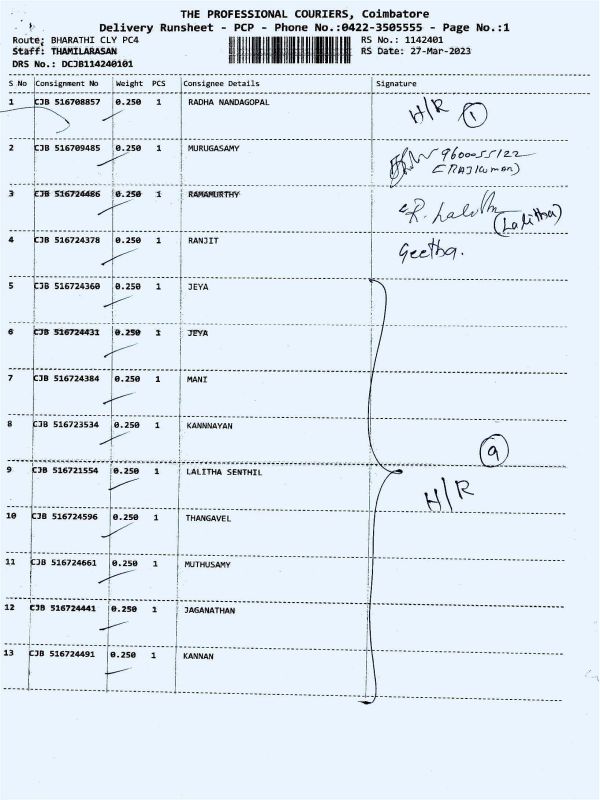 THE PROFESSIONAL COURIERS, Coimbatore
Delivery Runsheet - PCP - Phone No.:0422-3505555 - Page No.:1
Route: BHARATHI CLY PC4 RS No.: 1142401
Staff: THAMILARASAN RS Date: 27-Mar-2023
DRS No.: DCJB114240101
S No Consignment No Weight PCS Consignee Details Signature
1 CJB 516708857 0.250 1 RADHA NANDAGOPAL H/R 1
2 CJB 516709485 0.250 1 MURUGASAMY 9600055122
(RAJKumar)
3 CJB 516724486 0.250 1 RAMAMURTHY R. Lalitha (Lalitha)
4 CJB 516724378 0.250 1 RANJIT Geetha.
5 CJB 516724360 0.250 1 JEYA
6 CJB 516724431 0.250 1 JEYA
7 CJB 516724384 0.250 1 MANI
8 CJB 516723534 0.250 1 KANNNAYAN 9
9 CJB 516721554 0.250 1 LALITHA SENTHIL H/R
10 CJB 516724596 0.250 1 THANGAVEL
11 CJB 516724661 0.250 1 MUTHUSAMY
12 CJB 516724441 0.250 1 JAGANATHAN
13 CJB 516724491 0.250 1 KANNAN